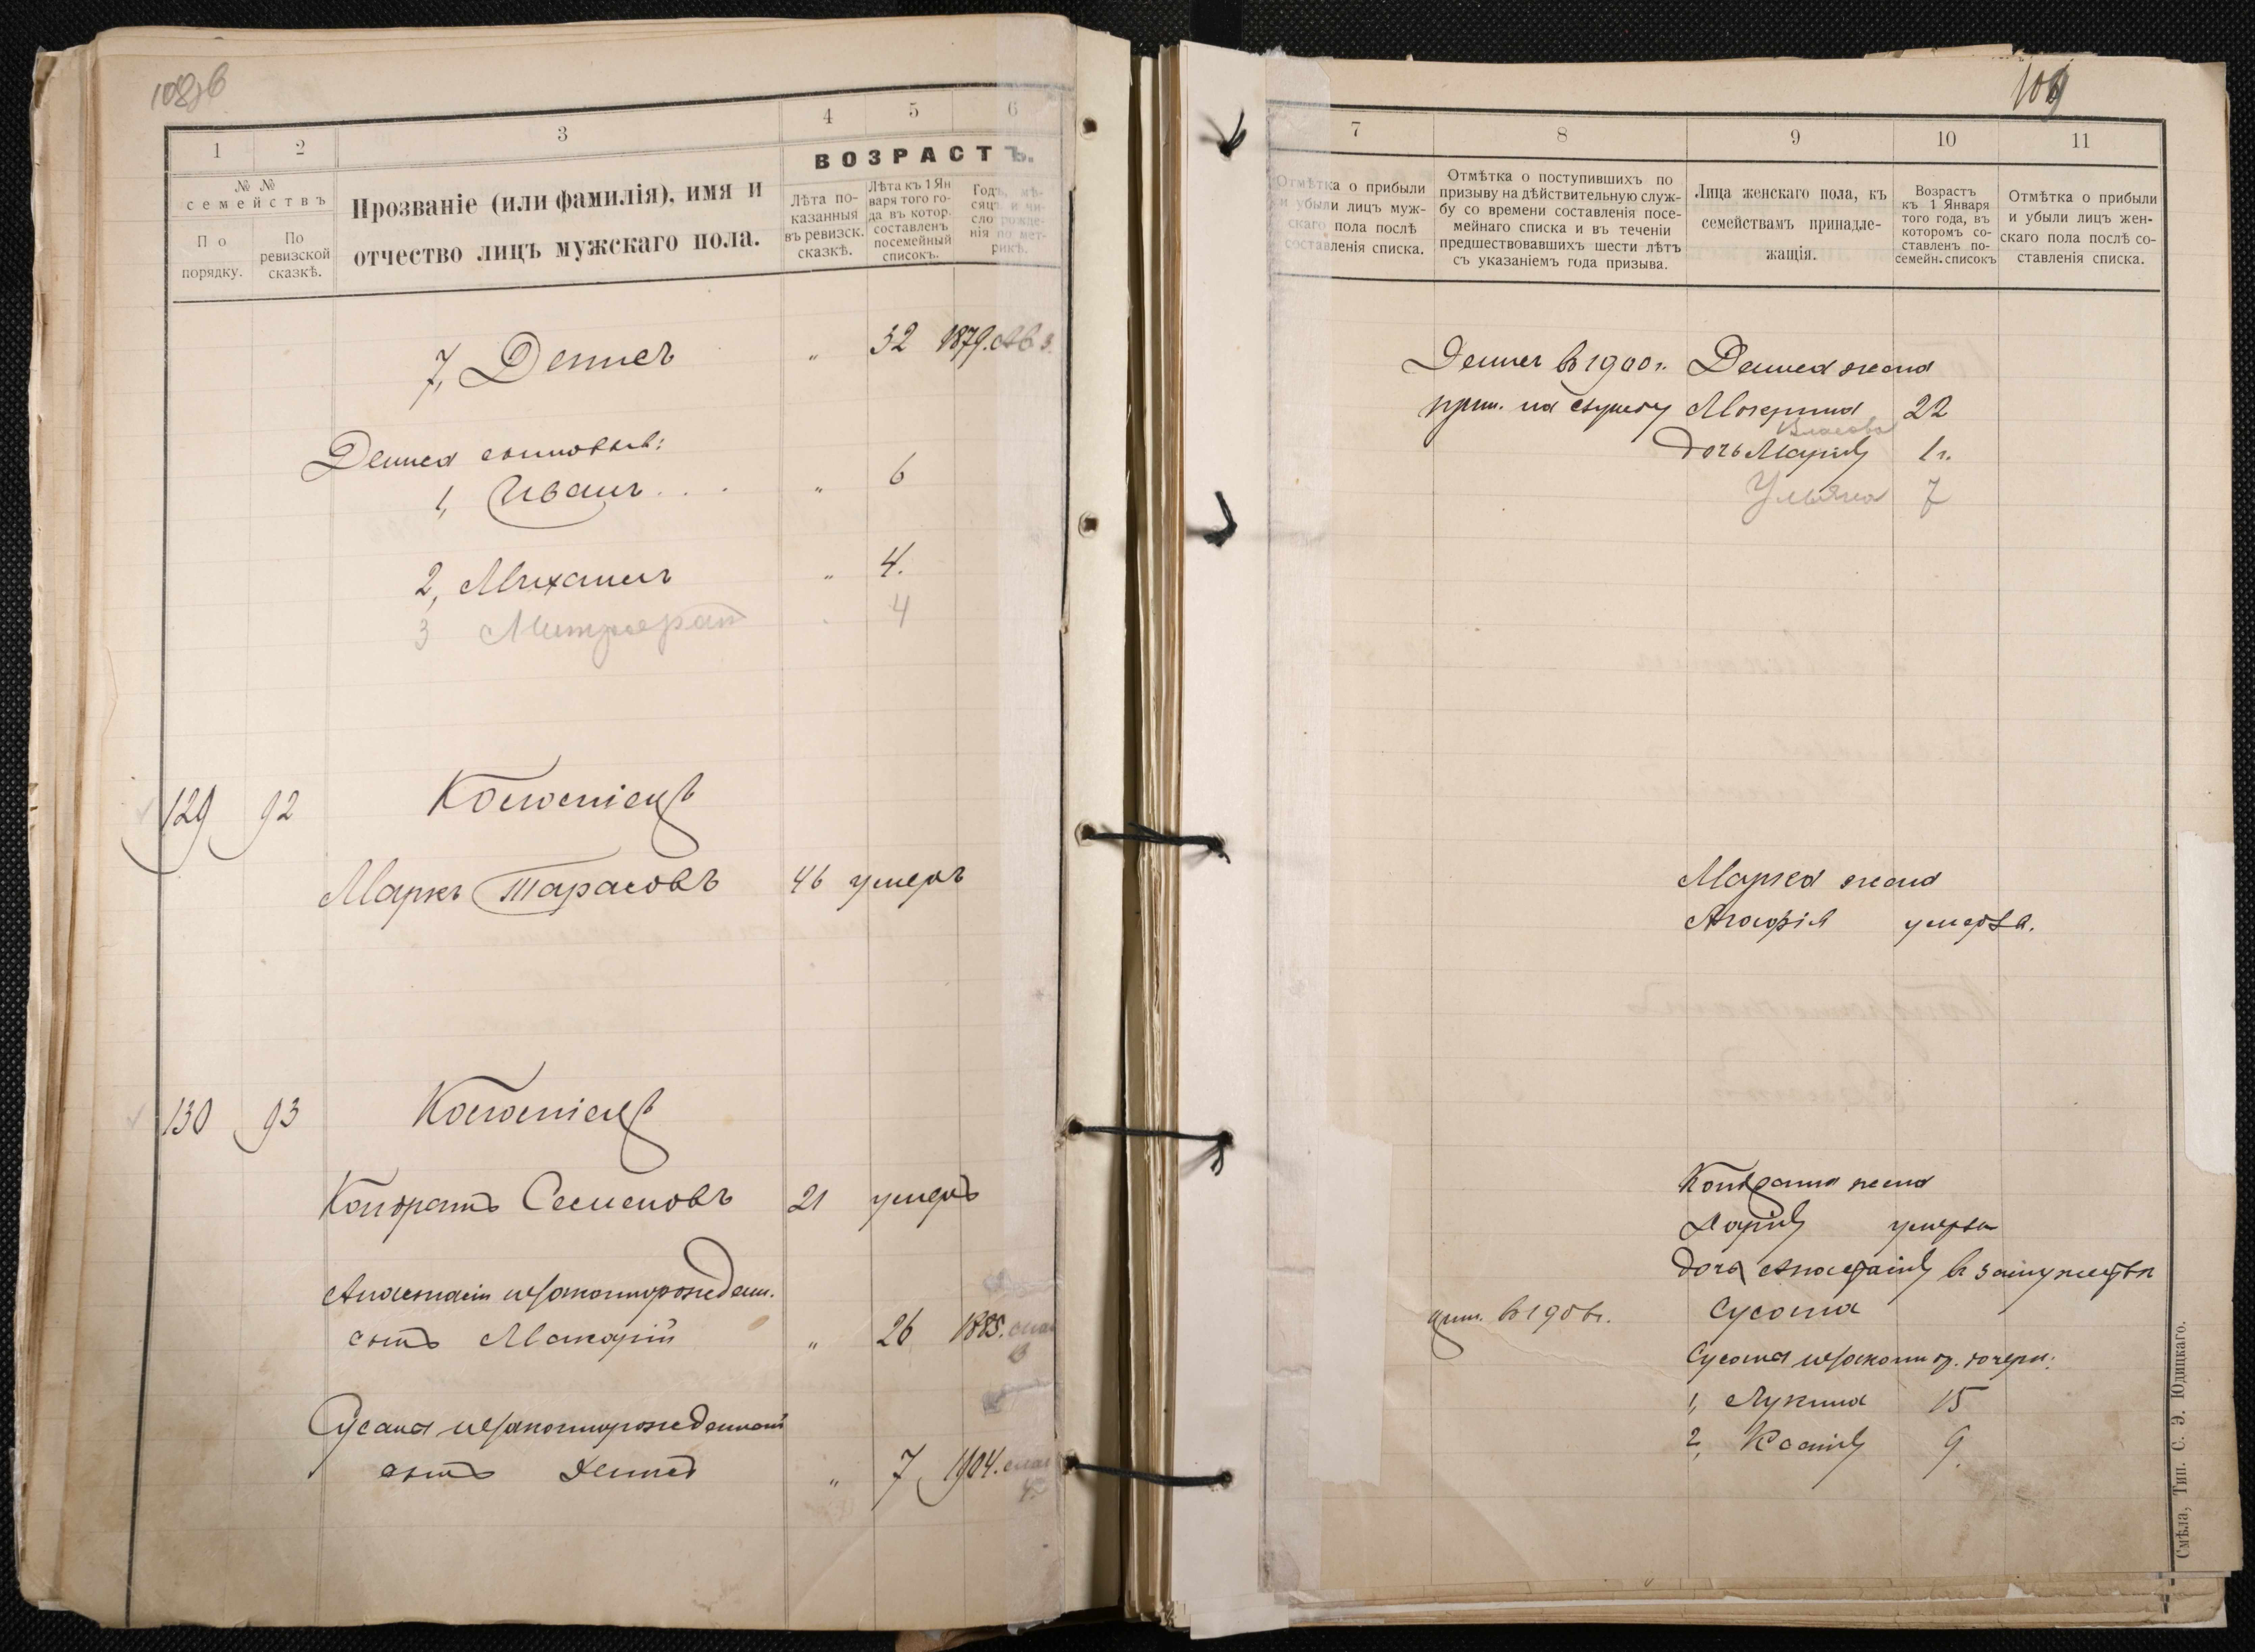 108об
1
2
3
4
5
6
№ №
семействъ
По порядку.
По ревизской сказкѣ.
Прозваніе (или фамилія), имя и
отчество лицъ мужскаго пола.
ВОЗРАСТЪ.
Лѣта по-
казанныя
въ ревизск.
сказкѣ.
Лѣта къ 1 Ян
варя того го-
да въ котор.
составленъ
посемейный
списокъ.
Годъ, мѣ-
сяцъ и чи-
сло рожде-
нія по мет-
рикѣ.
7, Денисъ " 32 1879.
Дениса сыновья:
1, Иванъ " 6
2, Михаилъ " 4.
3 Митрофан 4
129 92
Маркъ Тарасовъ 46 умеръ
130 93
Кондратъ Семеновъ 21 умеръ
Анастасіи незаконнорожден.
сынъ Макарій " 26 1885.
Сусана незаконнорожденный
сынъ " 7 1904.
109
7
8
9
10
11
Отмѣтка о прибыли
и убыли лицъ муж-
скаго пола послѣ
составленія списка.
Отмѣтка о поступившихъ по
призыву на дѣйствительную служ-
бу со времени составленія посе-
мейнаго списка и въ теченіи
предшествовавшихъ шести лѣтъ
съ указаніемъ года призыва.
Лица женскаго пола, къ
семействамъ принадле-
жащія.
Возрастъ
къ 1 Января
того года, въ
которомъ со-
ставленъ по-
семейн. списокъ
Отмѣтка о прибыли
и убыли лицъ жен-
скаго пола послѣ со-
ставленія списка.
Денисъ въ 1900 г. Дениса жена
прин. на службу 22
Власова
дочь Марія 1 г.
Ульяна 7
Марка жена
Агафія умерла.
Кондрата жена
Дарія умерла
дочь Анастасія в замужествѣ
Сусана
Сусана незаконн. дочери:
1, Лукина 15
2, Ксенія 9
Смѣла, Тип. С. Э. Юдицкаго.